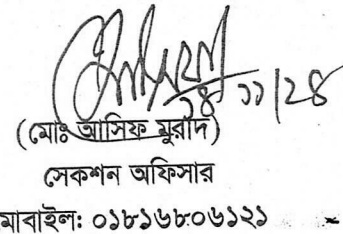 ১৪/১১/২৪
(মোঃ আসিফ মুরাদ)
সেকশন অফিসার
মোবাইল: ০১৮১৬৮০৬১২১